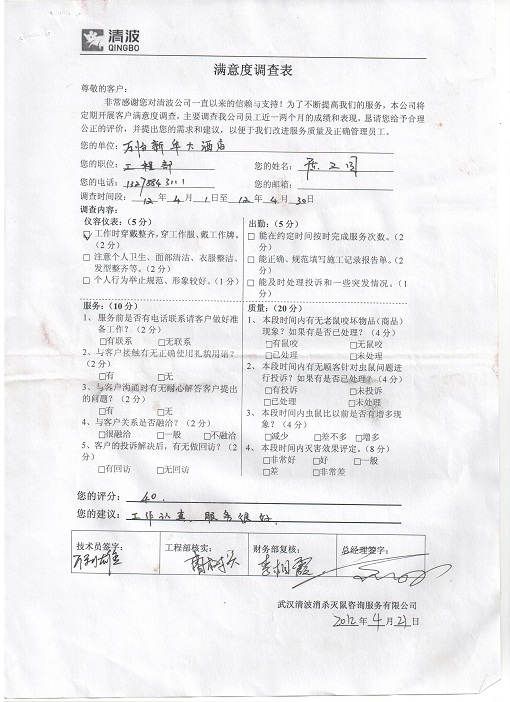 清波
QINGBO
满意度调查表
尊敬的客户：
非常感谢您对清波公司一直以来的信赖与支持！为了不断提高我们的服务，本公司将
定期开展客户满意度调查，主要调查我公司员工近一两个月的成绩和表现，恳请您给予合理
公正的评价，并提出您的需求和建议，以便于我们改进服务质量及正确管理员工。
您的单位：新华大酒店
您的职位：工程部 您的姓名：
您的电话： 您的邮箱：
调查时间段：12年4月1日至12年4月30日
调查内容：
仪容仪表：（5分）
☑工作时穿戴整齐，穿工作服、戴工作牌。
（2分）
□ 注意个人卫生、面部清洁、衣服整洁、
发型整齐等。（2分）
□ 个人行为举止规范、形象较好。（1分）
出勤：（5分）
□ 能在约定时间按时完成服务次数。（2
分）
□ 能正确、规范填写施工记录报告单。（2
分）
□ 能及时处理投诉和一些突发情况。（1
分）
服务：（10分）
1、 服务前是否有电话联系请客户做好准
备工作？（2分）
□有联系 □无联系
2、与客户接触有无正确使用礼貌用语？
（2分）
□有 □无
3、与客户沟通时有无耐心解答客户提出
的问题？（2分）
□有 □无
4、与客户关系是否融洽？（2分）
□很融洽 □一般 □不融洽
5、客户的投诉解决后，有无做回访？（2
分）
□有回访 □无回访
质量：（20分）
1、本段时间内有无老鼠咬坏物品（商品）
现象？如果有是否已处理？（4分）
□有鼠咬 □无鼠咬
□已处理 □未处理
2、本段时间内有无顾客针对虫鼠问题进
行投诉？如果有是否已处理？（4分）
□有投诉 □未投诉
□已处理 □未处理
3、本段时间内虫鼠比以前是否有增多现
象？（4分）
□减少 □差不多 □增多
4、本段时间内灭害效果评定。（8分）
□非常好 □好 □一般
□差 □非常差
您的评分：40.
您的建议：工作认真，服务很好。
技术员签字： 工程部核实： 财务部复核： 总经理签字：
李相霞
武汉清波消杀灭鼠咨询服务有限公司
2012年4月21日